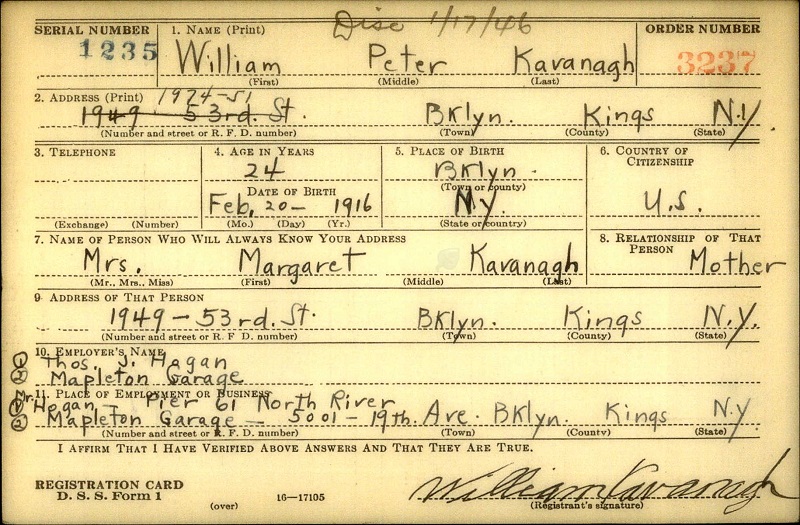 SERIAL NUMBER 1. NAME (Print) Disc 1/17/46 ORDER NUMBER
1235 William Peter Kavanagh 3237
(First) (Middle) (Last)
2. ADDRESS (Print) 1974-51
1949 53rd. St. Bklyn. Kings N.Y.
(Number and street or R. F. D. number) (Town) (County) (State)
3. TELEPHONE 4. AGE IN YEARS 5. PLACE OF BIRTH 6. COUNTRY OF CITIZENSHIP
24 Bklyn.
DATE OF BIRTH (Town or county)
Feb. 20- 1916 N.Y. U.S.
(Exchange) (Number) (Mo.) (Day) (Yr.) (State or country)
7. NAME OF PERSON WHO WILL ALWAYS KNOW YOUR ADDRESS 8. RELATIONSHIP OF THAT PERSON
Mrs. Margaret Kavanagh Mother
(Mr., Mrs., Miss) (First) (Middle) (Last)
9 ADDRESS OF THAT PERSON
1949-53rd. St. Bklyn. Kings N.Y.
(Number and street or R. F. D. number) (Town) (County) (State)
10. EMPLOYER'S NAME
① Thos. J. Hogan
② Mapleton Garage
11. PLACE OF EMPLOYMENT OR BUSINESS
① Mr. Hogan - Pier 61 North River
② Mapleton Garage - 5001-19th. Ave. Bklyn. Kings N.Y
(Number and street or R. F. D. number) (Town) (County) (State)
I AFFIRM THAT I HAVE VERIFIED ABOVE ANSWERS AND THAT THEY ARE TRUE.
REGISTRATION CARD
D. S. S. Form 1 William Kavanagh
(over) 16-17105 (Registrant's signature)